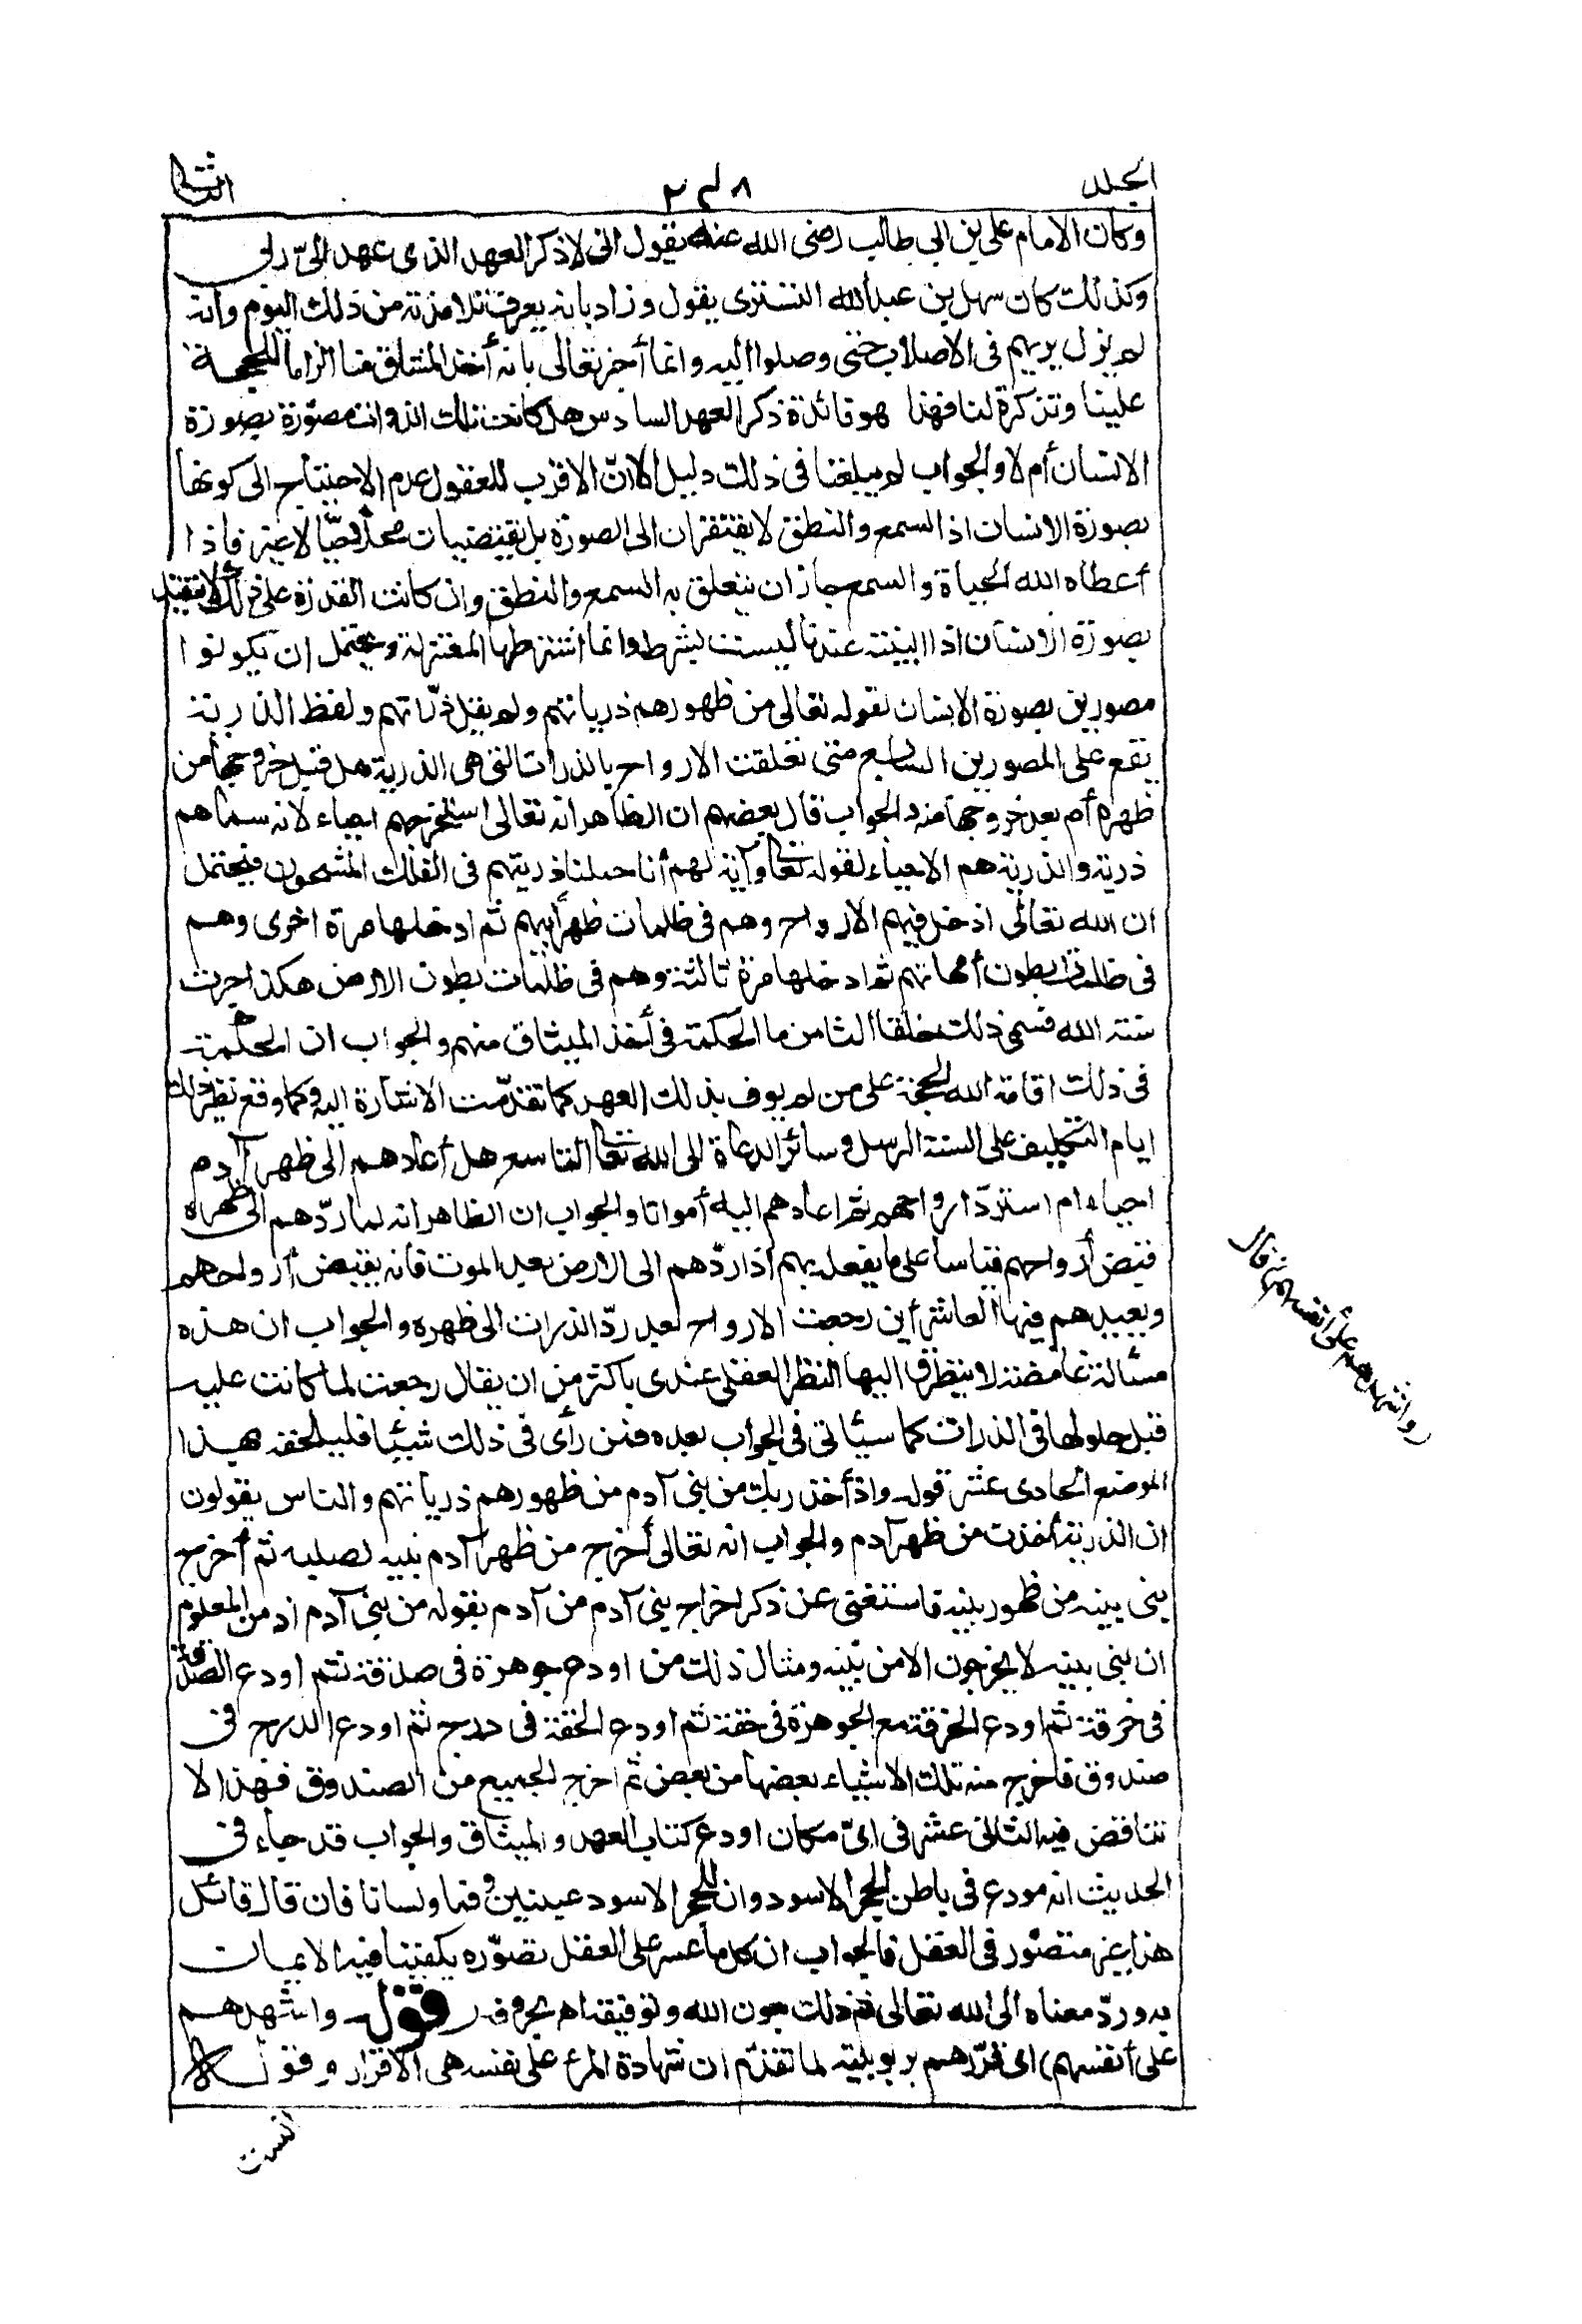 الجلد
٢٣٨
الثانى
وكان الامام على بن ابى طالب رضى الله عنه يقول انى لاذكر العهد الذى عهد الىّ ربى
وكذلك كان سهل بن عبد الله التسترى يقول وزاد بانه يعرف تلامذته من ذلك اليوم وأنه
لم يزل يربيهم فى الاصلاب حتى وصلوا اليه وانما أخبر تعالى بانه أخذ الميثاق منا الزاما للحجة
علينا وتذكرة لنا فهذا هو فائدة ذكر العهد السادس هل كانت تلك الذوات مصوّرة بصورة
الانسان أم لا والجواب لم يبلغنا فى ذلك دليل الا انّ الاقرب للعقول عدم الاحتياج الى كونها
بصورة الانسان اذ السمع والنطق لا يفتقران الى الصورة بل يقتضيان محلا حيّا لا غير فاذا
أعطاه الله الحياة والسمع جاز ان يتعلق به السمع والنطق وان كانت القدرة على ذلك لا تتقيد
بصورة الانسان اذ البنية عندنا ليست بشرط وانما اشترطها المعتزلة ويحتمل ان يكونوا
مصورين بصورة الانسان لقوله تعالى من ظهورهم ذرياتهم ولم يقل ذرّاتهم ولفظ الذرية
يقع على المصورين السابع متى تعلقت الارواح بالذرات التى هى الذرية هل قبل خروجها من
ظهره أم بعد خروجها منه والجواب قال بعضهم ان الظاهر انه تعالى استخرجهم احياء لانه سماهم
ذرية والذرية هم الاحياء لقوله تعالى وآية لهم أنا حملنا ذريتهم فى الفلك المشحون فيحتمل
ان الله تعالى ادخل فيهم الارواح وهم فى ظلمات ظهر أبيهم ثم ادخلها مرة اخرى وهم
فى ظلمات بطون أمهاتهم ثم ادخلها مرة ثالثة وهم فى ظلمات بطون الارض هكذا جرت
سنة الله فسمى ذلك خلقا الثامن ما الحكمة فى أخذ الميثاق منهم والجواب ان الحكمة
فى ذلك اقامة الله الحجة على من لم يوف بذلك العهد كما تقدّمت الاشارة اليه وكما وقع نظير ذلك
ايام التكليف على السنة الرسل وسائر الدعاة الى الله تعالى التاسع هل أعادهم الى ظهر آدم
احياء ام استردّ ارواحهم ثم اعادهم اليه أمواتا والجواب ان الظاهر انه لما ردّهم الى ظهره
قبض أرواحهم قياسا على ما يفعل بهم اذا ردّهم الى الارض بعد الموت فانه يقبض أرواحهم
ويعيدهم فيها العاشر أين رجعت الارواح بعد ردّ الذرات الى ظهره والجواب ان هذه
مسألة غامضة لا يتطرق اليها النظر العقلى عندى باكثر من ان يقال رجعت لما كانت عليه
قبل حلولها فى الذرات كما سيأتى فى الجواب بعده فمن رأى فى ذلك شيئا فليلحقه بهذا
الموضع الحادى عشر قوله واذ أخذ ربك من بنى آدم من ظهورهم ذرياتهم والناس يقولون
ان الذرية أخذت من ظهر آدم والجواب انه تعالى أخرج من ظهر آدم بنيه لصلبه ثم أخرج
بنى بنيه من ظهور بنيه فاستغنى عن ذكر اخراج بنى آدم من آدم بقوله من بنى آدم اذ من المعلوم
ان بنى بنيه لا يخرجون الا من بنيه ومثال ذلك من اودع جوهرة فى صدفة ثم اودع الصدفة
فى خرقة ثم اودع الخرقة مع الجوهرة فى حقة ثم اودع الحقة فى درج ثم اودع الدرج فى
صندوق فاخرج منه تلك الاشياء بعضها من بعض ثم اخرج الجميع من الصندوق فهذا لا
تناقض فيه الثانى عشر فى اىّ مكان اودع كتاب العهد والميثاق والجواب قد جاء فى
الحديث انه مودع فى باطن الحجر الاسود وان للحجر الاسود عينين وفما ولسانا فان قال قائل
هذا غير متصوّر فى العقل فالجواب ان كل ما عسر على العقل تصوّره يكفينا فيه الايمان
به وردّ معناه الى الله تعالى تم ذلك بعون الله وتوفيقه اهـ بحروفه قوله (واشهدهم
على أنفسهم) اى قرّرهم بربوبيته لما تقدّم ان شهادة المرء على نفسه هى الاقرار وقوله
(واشهدهم على أنفسهم) قال
الست